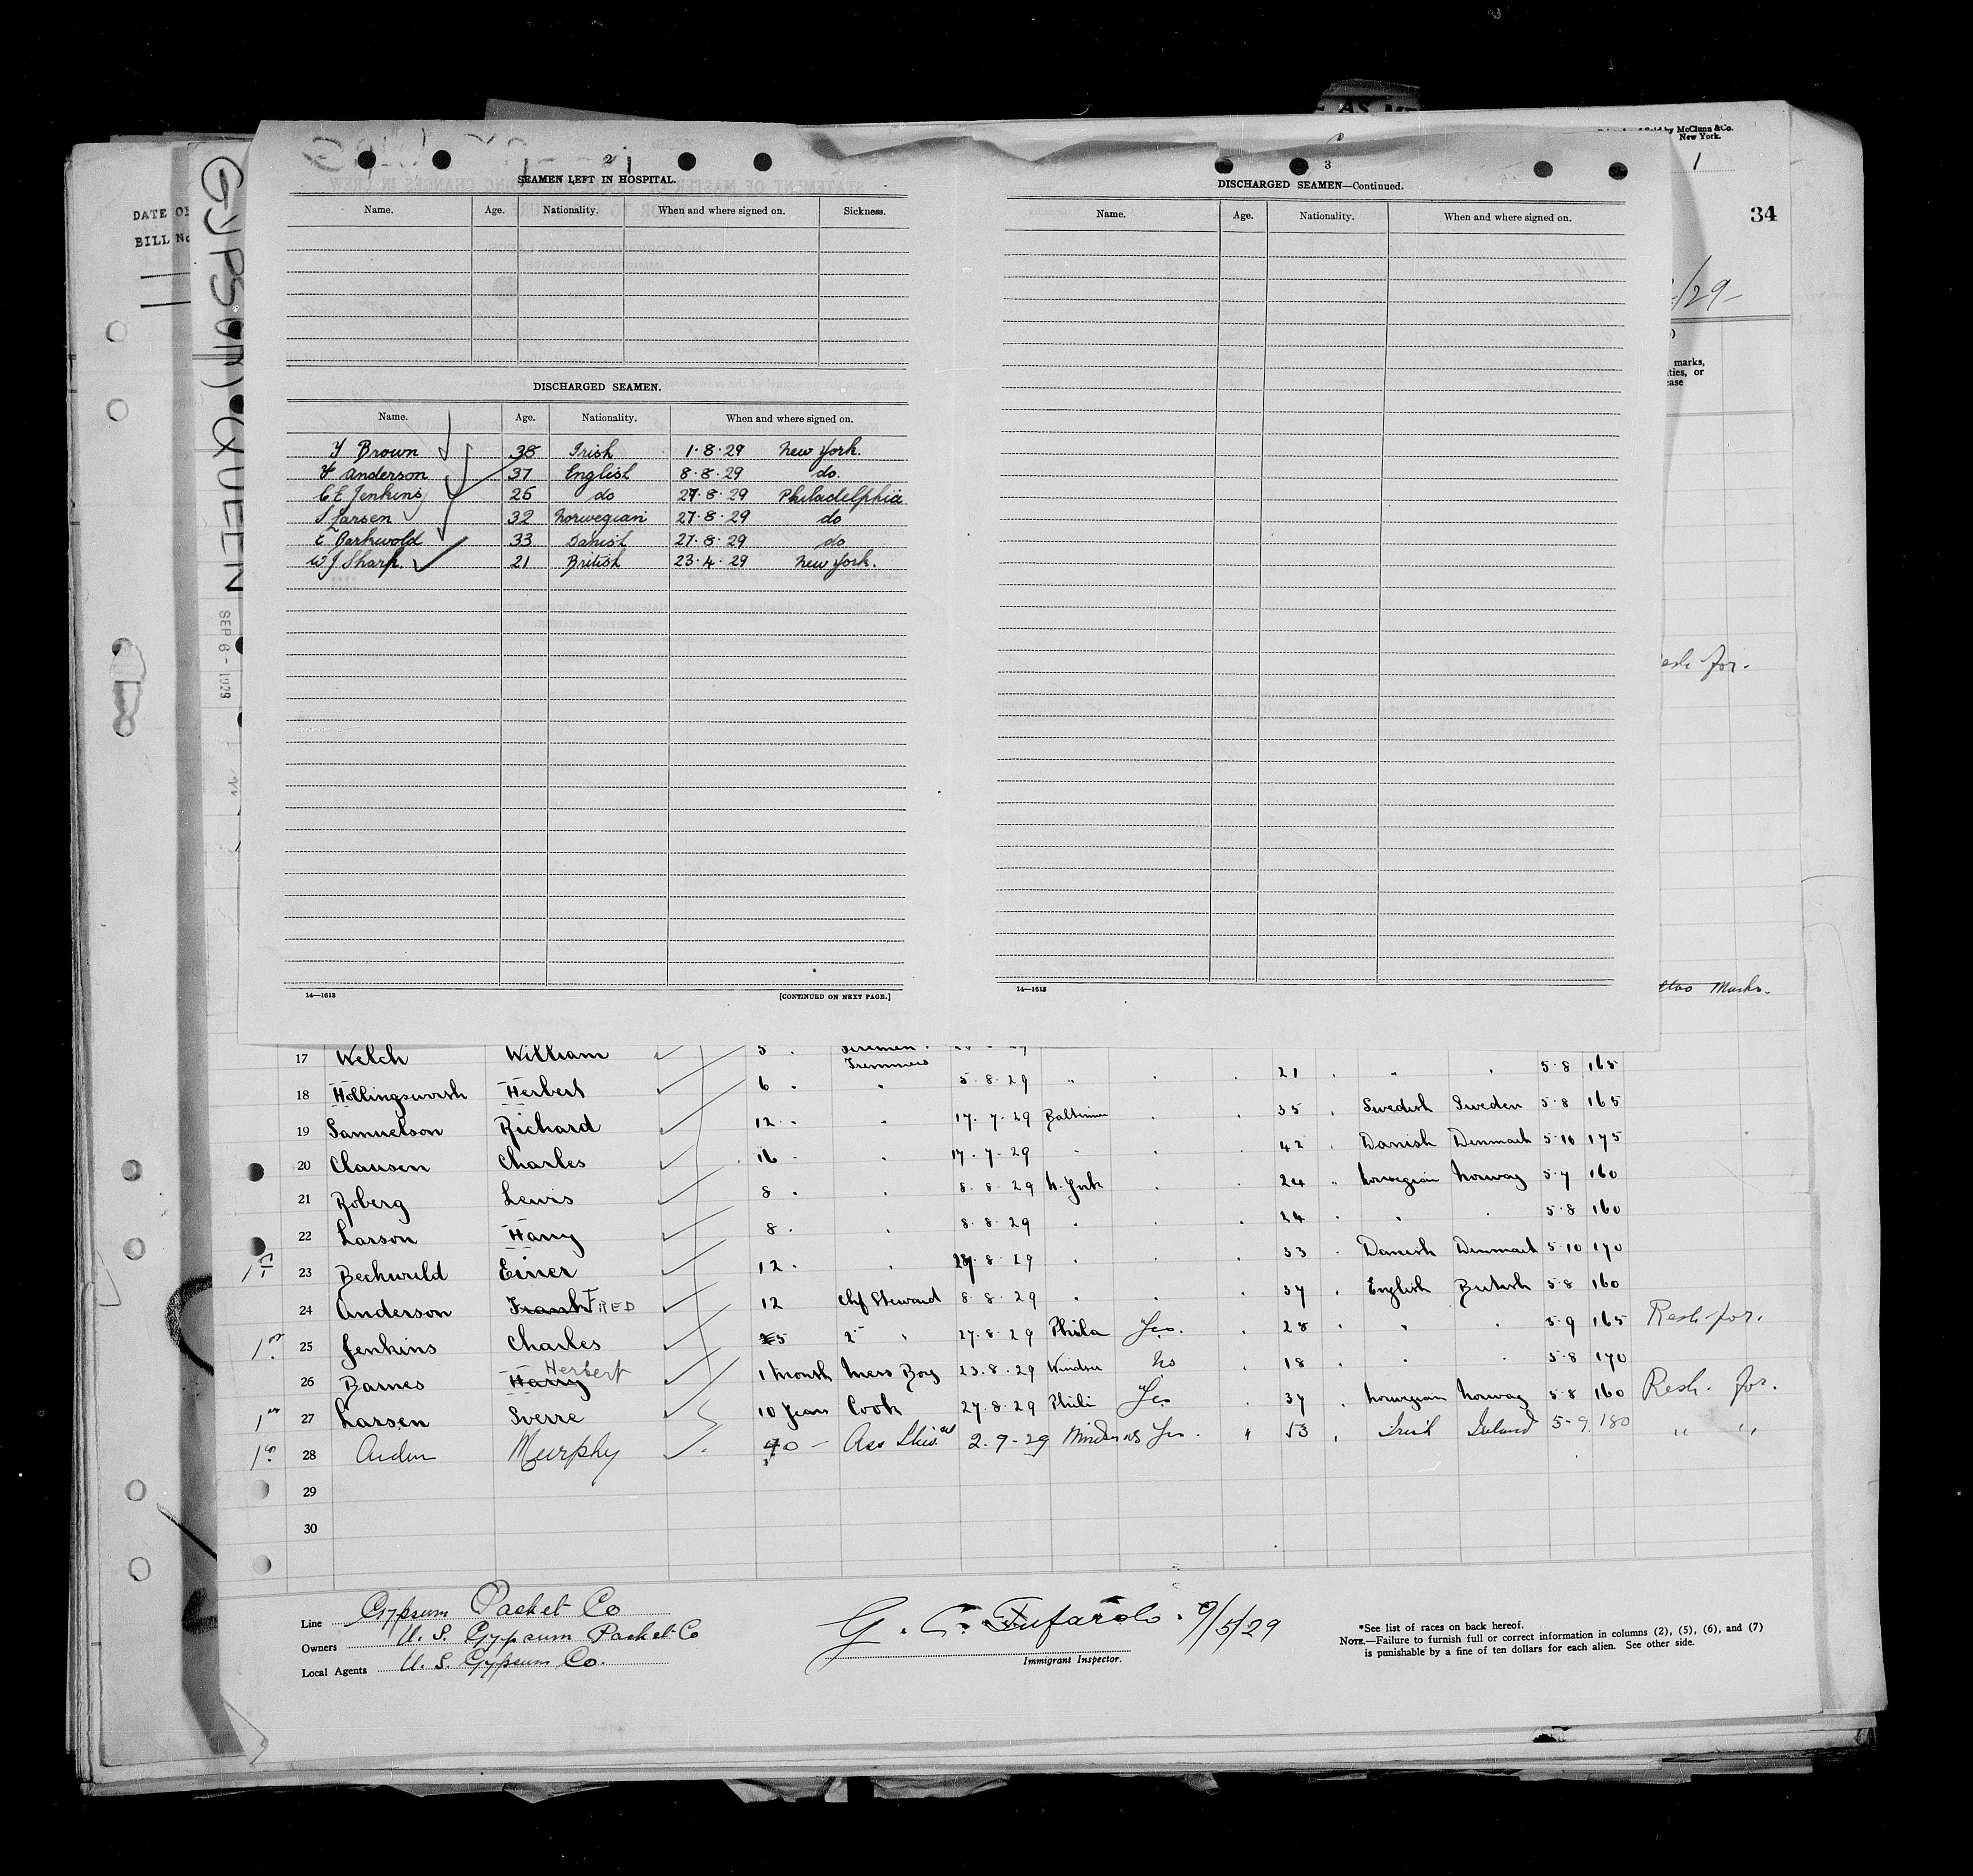 AS ME
by McClunn & Co.
New York.
1
34
DATE OF
BILL No.
GYPSUM QUEEN
SEP 6 - 1929
/29
marks,
ities, or
ease
2
SEAMEN LEFT IN HOSPITAL.
Name. Age. Nationality. When and where signed on. Sickness.
DISCHARGED SEAMEN.
Name. Age. Nationality. When and where signed on.
Y Brown 38 Irish 1.8.29 New York.
F Anderson 37 English 8.8.29 do.
C E Jenkins 25 do 27.8.29 Philadelphia
S Larsen 32 Norwegian 27.8.29 do
E Barkwold 33 Danish 27.8.29 do
W J Sharp. 21 British 23.4.29 New York.
14—1613 [CONTINUED ON NEXT PAGE.]
3
DISCHARGED SEAMEN—Continued.
Name. Age. Nationality. When and where signed on.
14—1613
for.
Marks.
17 Welch William 5 Firemen &
Trimmers 21 5.8 165
18 Hollingsworth Herbert 6 " 5.8.29 " 35 Swedish Sweden 5.8 165
19 Samuelson Richard 12 " 17.7.29 Baltimore 42 Danish Denmark 5.10 175
20 Clausen Charles 16 " 17.7.29 " 24 Norwegian Norway 5.7 160
21 Roberg Lewis 8 " 8.8.29 N. York 24 " " 5.8 160
22 Larson Harry 8 " 8.8.29 " 33 Danish Denmark 5.10 170
1st 23 Bechwild Einer 12 " 27.8.29 " 37 English British 5.8 160
24 Anderson Frank FRED 12 Chf Steward 8.8.29 " 25 " " 5.9 165 Resh. for.
1st 25 Jenkins Charles 5 2nd " 27.8.29 Phila Yes. 18 " " 5.8 170
26 Barnes Harry Herbert 1 Month Mess Boy 23.8.29 Windsor No 37 Norwegian Norway 5.8 160 Resh. for.
1st 27 Larsen Sverre 10 Years Cook 27.8.29 Phili Yes 53 Irish Ireland 5-9 180 " "
1st 28 Murphy 2.9-29 Yes.
29
30
Line Gypsum Packet Co
Owners U. S. Gypsum Packet Co
Local Agents U. S. Gypsum Co.
G. C. Tufarolo. 9/5/29
Immigrant Inspector.
*See list of races on back hereof.
NOTE.—Failure to furnish full or correct information in columns (2), (5), (6), and (7)
is punishable by a fine of ten dollars for each alien. See other side.